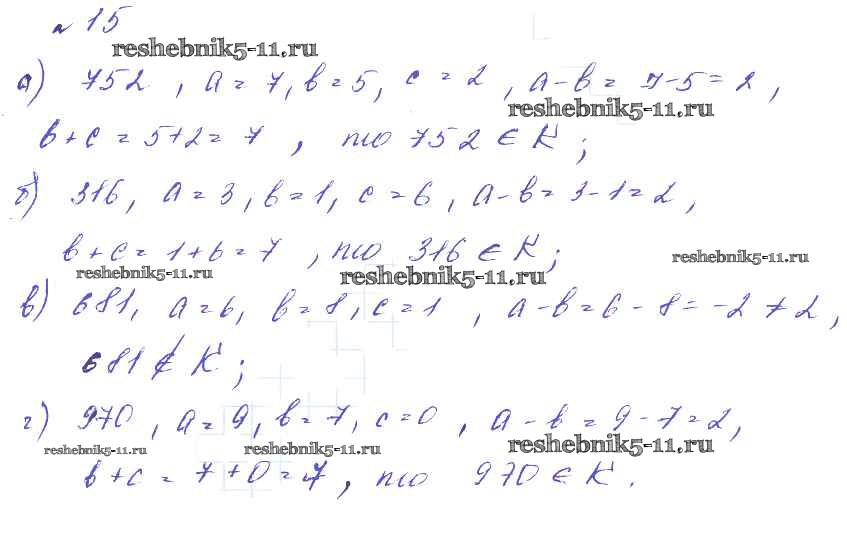 № 15
reshebnik5-11.ru
а) 752, a = 7, b = 5, c = 2, a - b = 7 - 5 = 2,
reshebnik5-11.ru
b + c = 5 + 2 = 7, то 752 ∈ K;
б) 316, a = 3, b = 1, c = 6, a - b = 3 - 1 = 2,
b + c = 1 + 6 = 7, то 316 ∈ K;
reshebnik5-11.ru
reshebnik5-11.ru
reshebnik5-11.ru
в) 681, a = 6, b = 8, c = 1, a - b = 6 - 8 = -2 ≠ 2,
681 ∉ K;
г) 970, a = 9, b = 7, c = 0, a - b = 9 - 7 = 2,
reshebnik5-11.ru
reshebnik5-11.ru
reshebnik5-11.ru
b + c = 7 + 0 = 7, то 970 ∈ K.